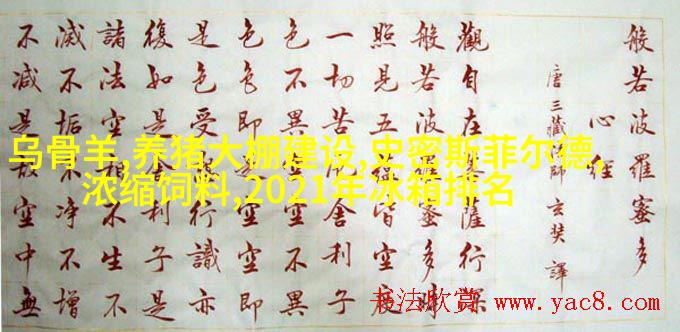 般若波羅蜜多
心經
唐三藏法師玄奘譯
觀自在菩薩行深
般若波羅蜜多時
照見五蘊皆空度
一切苦厄舍利子
色不異空空不異
色色即是空空即
是色受想行識亦
復如是舍利子是
諸法空相不生不
滅不垢不淨不增
不減是故空中無
乌骨羊,养猪大棚建设,史密斯菲尔德,
浓缩饲料,2021年冰箱排名
书法欣赏 www.yac8.com